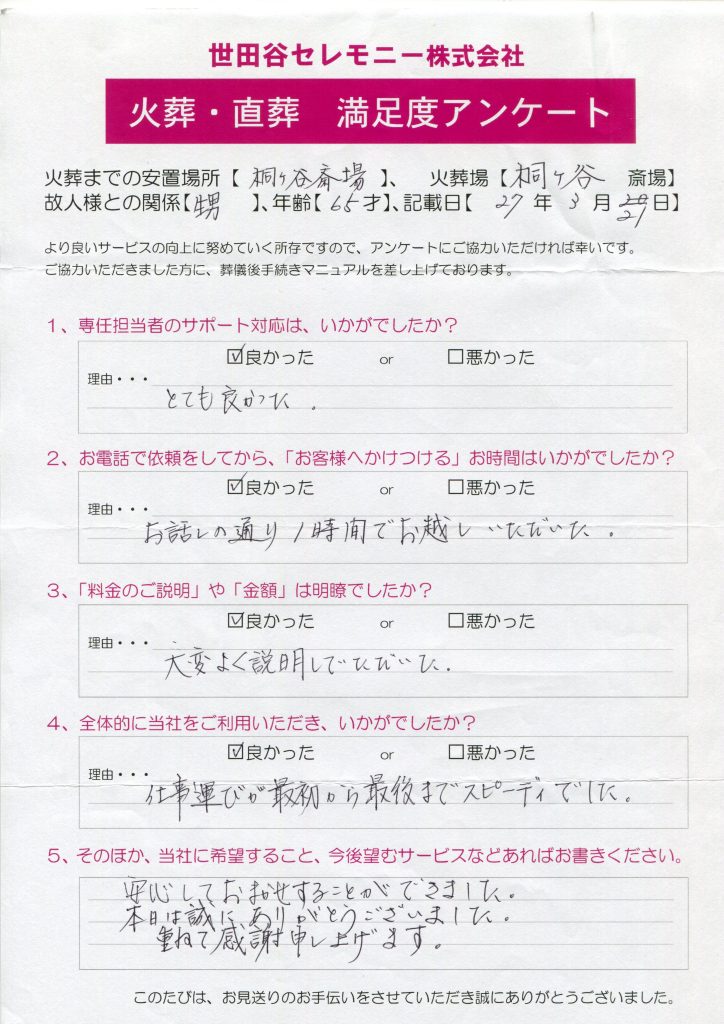 世田谷セレモニー株式会社
火葬・直葬　満足度アンケート
火葬までの安置場所【 桐ヶ谷斎場 】、　火葬場【 桐ヶ谷　斎場】
故人様との関係【甥　】、年齢【 65才】、記載日【　27　年　3　月　29日】
より良いサービスの向上に努めていく所存ですので、アンケートにご協力いただければ幸いです。
ご協力いただきました方に、葬儀後手続きマニュアルを差し上げております。
1、専任担当者のサポート対応は、いかがでしたか？
☑良かった　or　□悪かった
理由・・・
とても良かった．
2、お電話で依頼をしてから、「お客様へかけつける」お時間はいかがでしたか？
☑良かった　or　□悪かった
理由・・・
お話しの通り1時間でお越しいただいた．
3、「料金のご説明」や「金額」は明瞭でしたか？
☑良かった　or　□悪かった
理由・・・
大変よく説明していただいた．
4、全体的に当社をご利用いただき、いかがでしたか？
☑良かった　or　□悪かった
理由・・・
仕事運びが最初から最後までスピーディでした。
5、そのほか、当社に希望すること、今後望むサービスなどあればお書きください。
安心しておまかせすることができました。
本日は誠にありがとうございました。
重ねて感謝申し上げます。
このたびは、お見送りのお手伝いをさせていただき誠にありがとうございました。